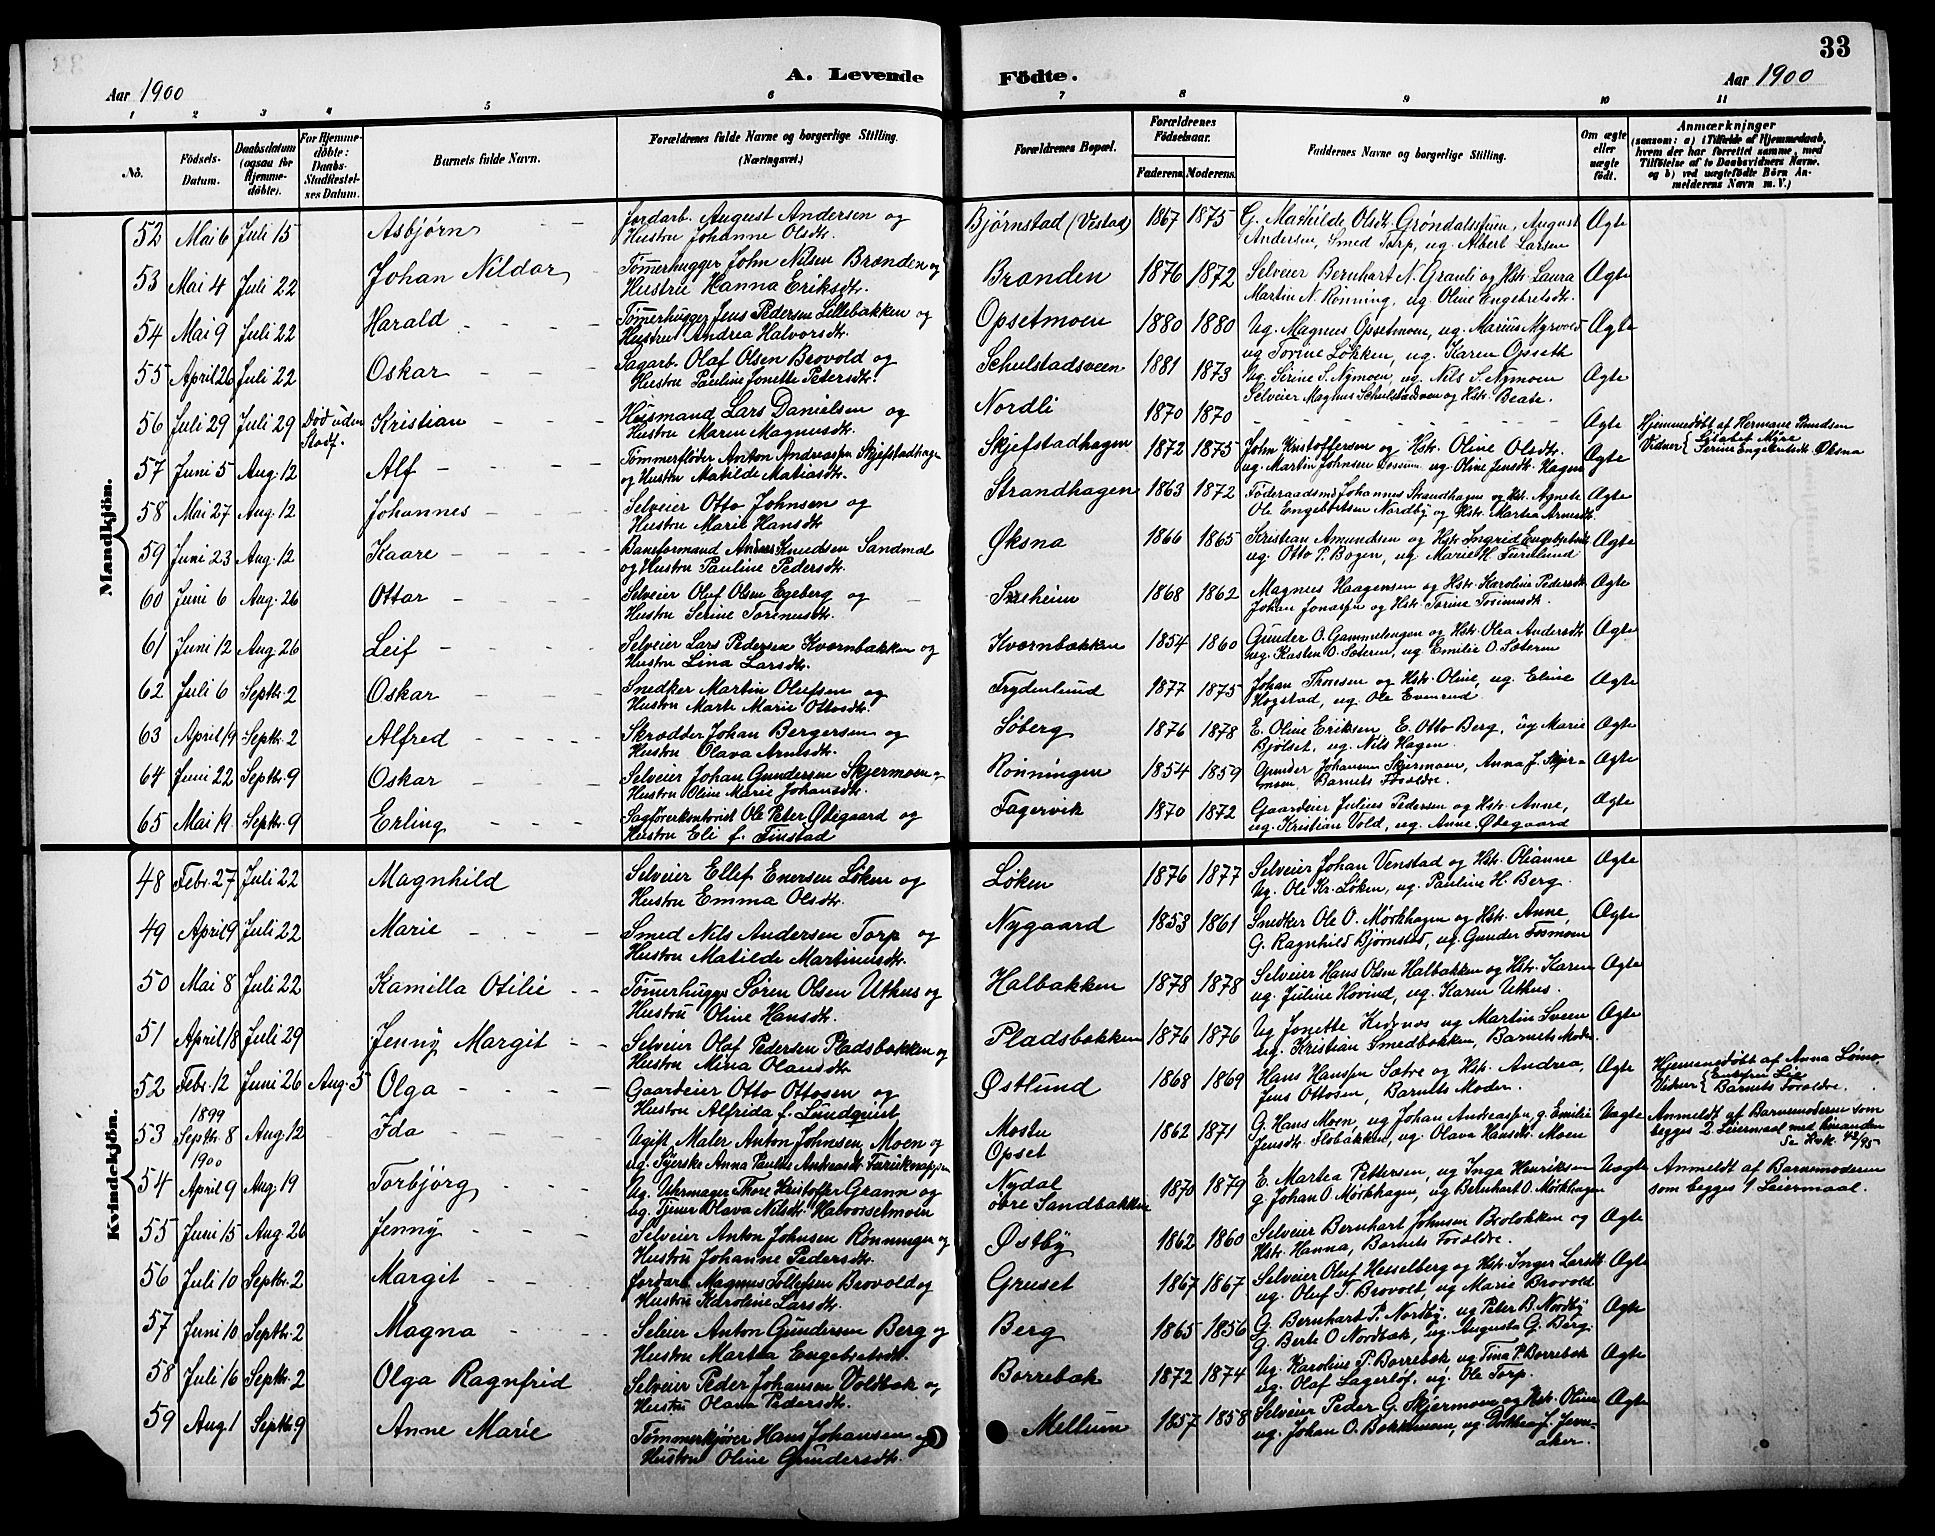 33
A. Levende Födte.
Aar 1900
Aar 1900
1 2 3 4 5 6 7 8 9 10 11
No.
Födsels-Datum.
Daabsdatum (ogsaa for Hjemmedöbte).
For Hjemmedöbte: Daabs-Stadfæstelses Datum.
Barnets fulde Navn.
Forældrenes fulde Navne og borgerlige Stilling. (Næringsvei.)
Forældrenes Bopæl.
Forældrenes Födselsaar.
Faderens. Moderens.
Faddernes Navne og borgerlige Stilling.
Om ægte eller uægte födt.
Anmærkninger
(saasom: a) (Tilfælde af Hjemmedaab, hvem der har forrettet samme, med Tilföielse af to Daabsvidners Navne. og b) ved uægtefödte Börn Anmelderens Navn m. V.)
Mandkjön.
52 Mai 6 Juli 15 Asbjørn Jordarb. August Andersen og Bjørnstad (Vestad) 1867 1875 G. Mathilde Olsdt. Grøndalsstuen, August Ægte
Hustru Johanne Olsdt. Andersen, Smed Torp, ug. Albert Larsen
53 Mai 4 Juli 22 Johan Nildor Tømerhugger John Nilsen Brænden og Brænden 1876 1872 Selveier Bernhart N. Grauli og Hst. Laura Ægte
Hustru Hanna Eriksdt. Martin N. Rønning, ug. Oline Engebretsdt.
54 Mai 9 Juli 22 Harald Tømerhugger Jens Pedersen Lillebakken og Opsetmoen 1880 1880 Ug. Magnus Opsetmoen, ug. Marius Myrvold Ægte
Hustru Andrea Halvorsdt. ug Torine Løkken, ug. Karen Opseth
55 April 26 Juli 22 Oskar Sagarb. Olaf Olsen Brovold og Schulstadsveen 1881 1873 Ug. Serine S. Nymoen, ug. Nils S. Nymoen Ægte
Hustru Pauline Jonette Petersdt. Selveier Magnus Schulstadsveen og Hst. Beate.
56 Juli 29 Juli 29 Död uden Stadf. Kristian Husmand Lars Danielsen og Nordli 1870 1870 Ægte Hjemmedøbt af Hermane Knudsen
Hustru Maren Magnusdt. Vidner
57 Juni 5 Aug. 12 Alf Tømmerfløder Anton Andreasen Skjefstadhagen Skjefstadhagen 1872 1875 John Kristoffersen og Hst. Oline Olsdt. Ægte
og Hustru Matilde Matiasdt. ug. Martin Johnsen ug. Oline Jensdt. Hagen
58 Mai 27 Aug. 12 Johannes Selveier Otto Johnsen og Strandhagen 1863 1872 Føderaadsmd Johannes Strandhagen og Hst. Agnete Ægte
Hustru Marie Hansdt. Ole Engebretsen Nordby og Hst. Martea Arnesdt.
59 Juni 23 Aug. 12 Kaare Baneformand Anders Knudsen Sandmæl Øksna 1866 1865 Kristian Amundsen og Hst. Ingrid Engebretsdt. Ægte
og Hustru Pauline Pedersdt. ug. Otto P. Bogen, ug Marie H. Furulund
60 Juni 6 Aug. 26 Ottar Selveier Olaf Olsen Egeberg og 1868 1862 Magnus Haagensen og Hst. Karoline Pedersdt. Ægte
Hustru Serine Torenusdt. Johan Jonassen og Hst. Torine
61 Juni 12 Aug 26 Leif Selveier Lars Pedersen Kværnbakken og Kværnbakken 1854 1860 Gunder O. Gammelengen og Hst. Olea Andersdt. Ægte
Hustru Lina Larsdt. ug. Kasten O. Sæteren, ug Emilie O. Sæteren
62 Juli 6 Septbr. 2 Oskar Snedker Martin Olufsen og Frydenlund 1877 1875 Johan Thomsen og Hst. Oline, ug Eline Ægte
Hustru Marte Marie Ottosdt. Hogstad, ug. Ole Evenrud.
63 April 19 Septbr. 2 Alfred Skrædder Johan Bergersen og Søberg 1876 1878 E. Oline Eriksen, E. Otto Berg, ug Marie Ægte
Hustru Olava Arnesdt. Bjølset, ug. Nils Hagen.
64 Juni 22 Septbr. 9 Oskar Selveier Johan Gundersen Skjermoen og Rönningen 1854 1859 Gunder Johansen Skjermoen, Anna J. Skjer- Ægte
Hustru Oline Marie Johansdt. moen, Barnets Forældre.
65 Mai 19 Septbr. 9 Erling Sagförerkontorist Ole Peter Ødegaard og Fagervik 1870 1872 Gaardeier Julius Pedersen og Hst. Anne, Ægte
Hustru Eli f. Finstad ug. Kristian Vold, ug. Anne Ødegaard
Kvindekjön.
48 Febr. 27 Juli 22 Magnhild Selveier Ellef Enersen Løken og Løken 1876 1877 Selveier Johan Venstad og Hst. Olianne Ægte
Hustru Emma Olsdt. Ug. Ole Kr. Løken, ug. Pauline H. Berg.
49 April 9 Juli 22 Marie Smed Nils Andersen Torp og Nygaard 1853 1861 Snedker Ole O. Mørkhagen og Hst. Anne, Ægte
Hustru Matilde Martinusdt. G. Ragnhild Bjørnstad, ug. Gunder Fosmoen
50 Mai 8 Juli 22 Kamilla Otilie Tømerhugger Sören Olsen Uthus og Halbakken 1878 1878 Selveier Hans Olsen Halbakken og Hst. Karen Ægte
Hustru Oline Hansdt. ug. Juline Hovind, ug. Karen Uthus.
51 April 18 Juli 29 Jenny Margit Selveier Olaf Pedersen Pladsbakken og Pladsbakken 1876 1876 Ug Jonette ug Martin Sveen Ægte
Hustru Mina Olausdt. ug. Kristian Smedbakken, Barnets Moder
52 Febr. 12 Juni 26 Aug. 5 Olga Gaardeier Otto Ottosen og Østlund 1868 1869 Hans Hansen Sætre og Hst. Andrea, Ægte Hjemmedøbt af Anna Lömo,
Hustru Alfrida f. Lundquist Jens Ottosen, Barnets Moder. Vidner Barnets Forældre.
53 1899 Septbr. 8 Aug. 12 Ida Ugift Maler Anton Johnsen Moen og 1862 1871 G. Hans Moen, ug Johan Andreassen, g. Emilie Uægte Anmeldt af Barnemoderen som
ug. Syerske Anna Pauline Andreasdt. Opset Jensdt. Slobakken, ug. Olava Hansdt. Moen begges 2. Leiermaal med hinanden
Se Kbk. 42/95
54 1900 April 9 Aug. 19 Torbjørg Ug. Uhrmager Thore Kristoffer Grann og Nydal 1870 1879 E. Martea Pettersen, ug Inga Henriksen Uægte Anmeldt af Barnemoderen
ug. Tjener Olava Nilsdt. Halvorsetmoen øvre Sandbakken g. Johan O. Mørkhagen, ug Bernhart O. Mørkhagen som begges 1 Leiermaal.
55 Juni 15 Aug. 26 Jenny Selveier Anton Johnsen Rønningen og Østby 1862 1860 Selveier Bernhart Johnsen Brolokken og Ægte
Hustru Johanne Pedersdt. Hst. Hanna, Barnets Forældre.
56 Juli 10 Septbr. 2 Margit Jordarb. Magnus Tollefsen Brovold og Gruset 1867 1867 Selveier Oluf Hesselberg og Hst. Inger Larsdt. Ægte
Hustru Karoline Larsdt. ug. Oluf T. Brovold, ug Marie Brovold
57 Juni 10 Septbr. 2 Magna Selveier Anton Gundersen Berg og Berg 1865 1856 G. Bernhart P. Nordby, ug Peter B. Nordby Ægte
Hustru Martea Engebretsdt. G. Berte O Nordbæk, ug. Augusta G. Berg.
58 Juli 16 Septbr. 2 Olga Ragnfrid Selveier Peder Johansen Voldbæk og Borrebæk 1872 1874 Ug Karoline P. Borrebæk, ug Tina P. Borrebæk Ægte
Hustru Olava Pedersdt. ug. Olaf Lagerlöf, ug. Ole Torp.
59 Aug 1 Septbr. 9 Anne Marie Tømmerkjører Hans Johansen og Mellum 1857 1858 Selveier Peder G. Skjermoen og Hst. Oline Ægte
Hustru Oline Gundersdt. ug. Johan O. Bakkemoen, ug Dorthea J.
aker.